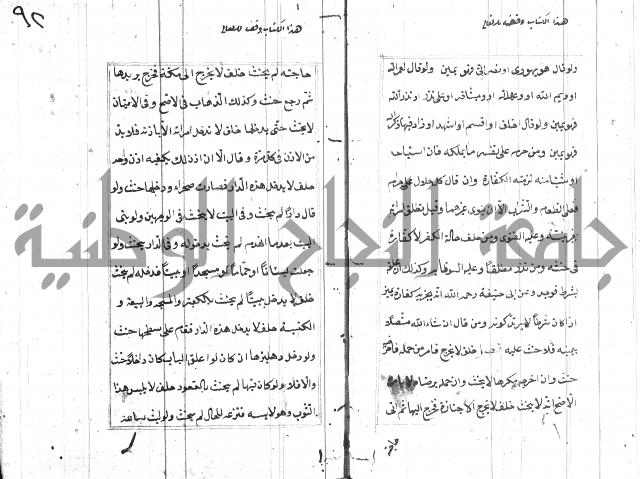 هذا الكتاب وقف
ولو قال هو يهودي او نصراني فهو يمين ولو قال لعمر الله
او وايم الله او وعهد الله او وميثاقه او علي نذر او نذر الله
فهو يمين ولو قال احلف او اقسم او اشهد او زاد فيها ذكر الله
فهو يمين ومن حرم على نفسه ما يملكه فان استباحه
او شيئا منه لزمته الكفارة وان قال كل حلال علي حرام
فعلى الطعام والشراب الا ان ينوي غيرهما وقيل تطلق امرأته
بغير نية وعليه الفتوى ومن حلف حالة الكفر لا كفارة
في حنثه ومن نذر مطلقا فعليه الوفاء به وكذلك ان علقه
بشرط فوجد وعن ابي حنيفة رحمه الله انه يجزيه كفارة يمين
اذا كان شرطا لا يريد كونه ومن قال ان شاء الله متصلا
بيمينه فلا حنث عليه حلف لا يخرج فامر من حمله فاخرجه
حنث وان اخرجه مكرها لا يحنث وان حمله برضاه لا بامره
الاصح انه لا يحنث حلف لا يخرج الا جنازة فخرج اليها ثم اتى
٩٢
هذا الكتاب وقف
حاجته لم يحنث حلف لا يخرج الى مكة فخرج يريدها
ثم رجع حنث وكذلك الذهاب في الاصح وفي الاتيان
لا يحنث حتى يدخلها حلف لا تدخل امرأته الا باذنه فلا بد
من الاذن في كل مرة و قال الا ان اذن لك يكفيه اذن واحد
حلف لا يدخل هذه الدار فصارت صحراء ودخلها حنث ولو
قال دارا لم يحنث وفي البيت لا يحنث في الوجهين ولو بنى
البيت بعدما انهدم لم يحنث بدخوله وفي الدار يحنث ولو
جعلت بستانا او حماما او مسجدا او بيتا فدخله لم يحنث
حلف لا يدخل بيتا لم يحنث بالكعبة والمسجد والبيعة و
الكنيسة حلف لا يدخل هذه الدار فقام على سطحها حنث
ولو دخل دهليزها ان كان لو اغلق الباب كان داخلا حنث
والا فلا ولو كان فيها لم يحنث بالقعود حلف لا يلبس هذا
الثوب وهو لابسه فنزعه للحال لم يحنث ولو لبث ساعة
جامعة النجاح الوطنية